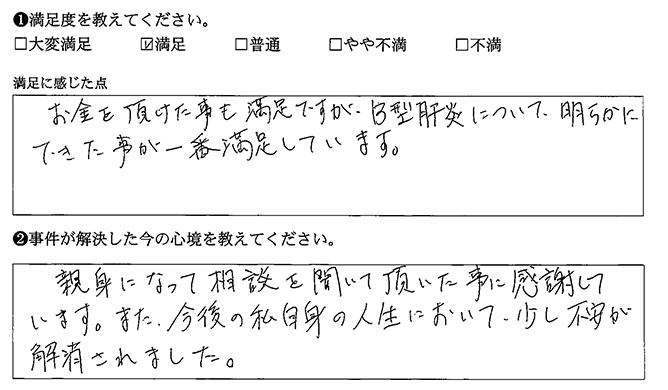 ❶満足度を教えてください。
□大変満足 ☑満足 □普通 □やや不満 □不満
満足に感じた点
お金を頂けた事も満足ですが、B型肝炎について、明らかに
できた事が一番満足しています。
❷事件が解決した今の心境を教えてください。
親身になって相談を聞いて頂いた事に感謝して
います。また、今後の私自身の人生において、少し不安が
解消されました。